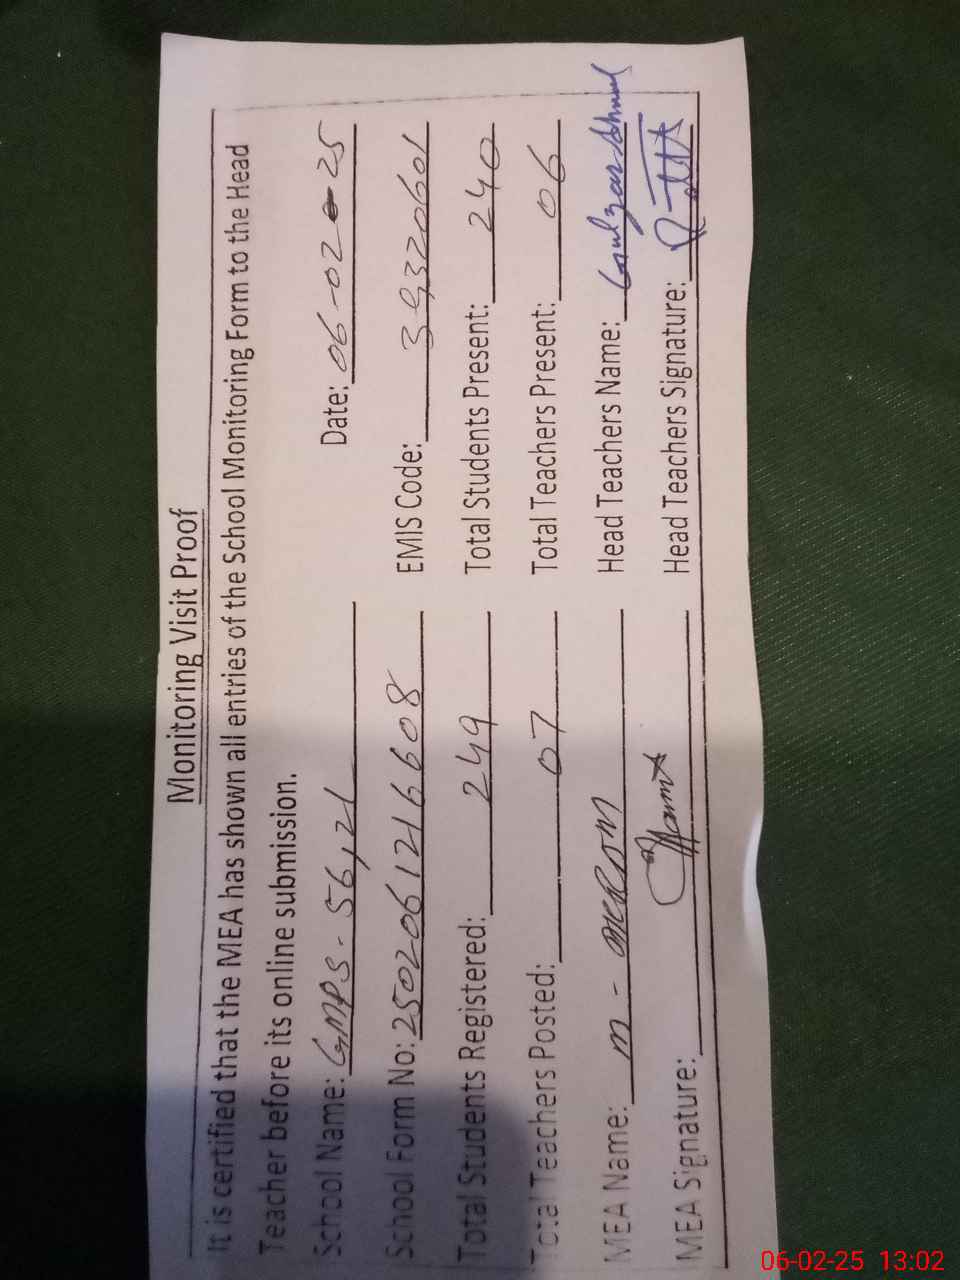 Monitoring Visit Proof
It is certified that the MEA has shown all entries of the School Monitoring Form to the Head
Teacher before its online submission.
School Name: GMPS - 56,21 Date: 06-02-25
School Form No: 2502061216608 EMIS Code: 39320601
Total Students Registered: 249 Total Students Present: 240
Total Teachers Posted: 07 Total Teachers Present: 06
MEA Name: m - Head Teachers Name: Gulzar Ahmad
MEA Signature: Head Teachers Signature:
06-02-25 13:02